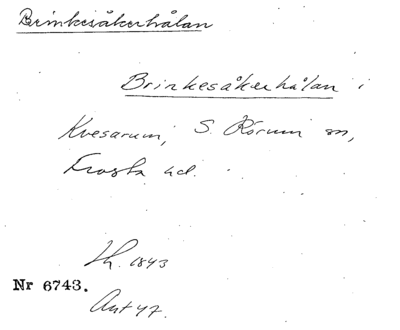 Brinkesåkerhålan
Brinkesåkerhålan i
Kvesarum, S. Rörum sn,
Frosta hd.
Lh. 1843
Nr 6743.
Ant 47.